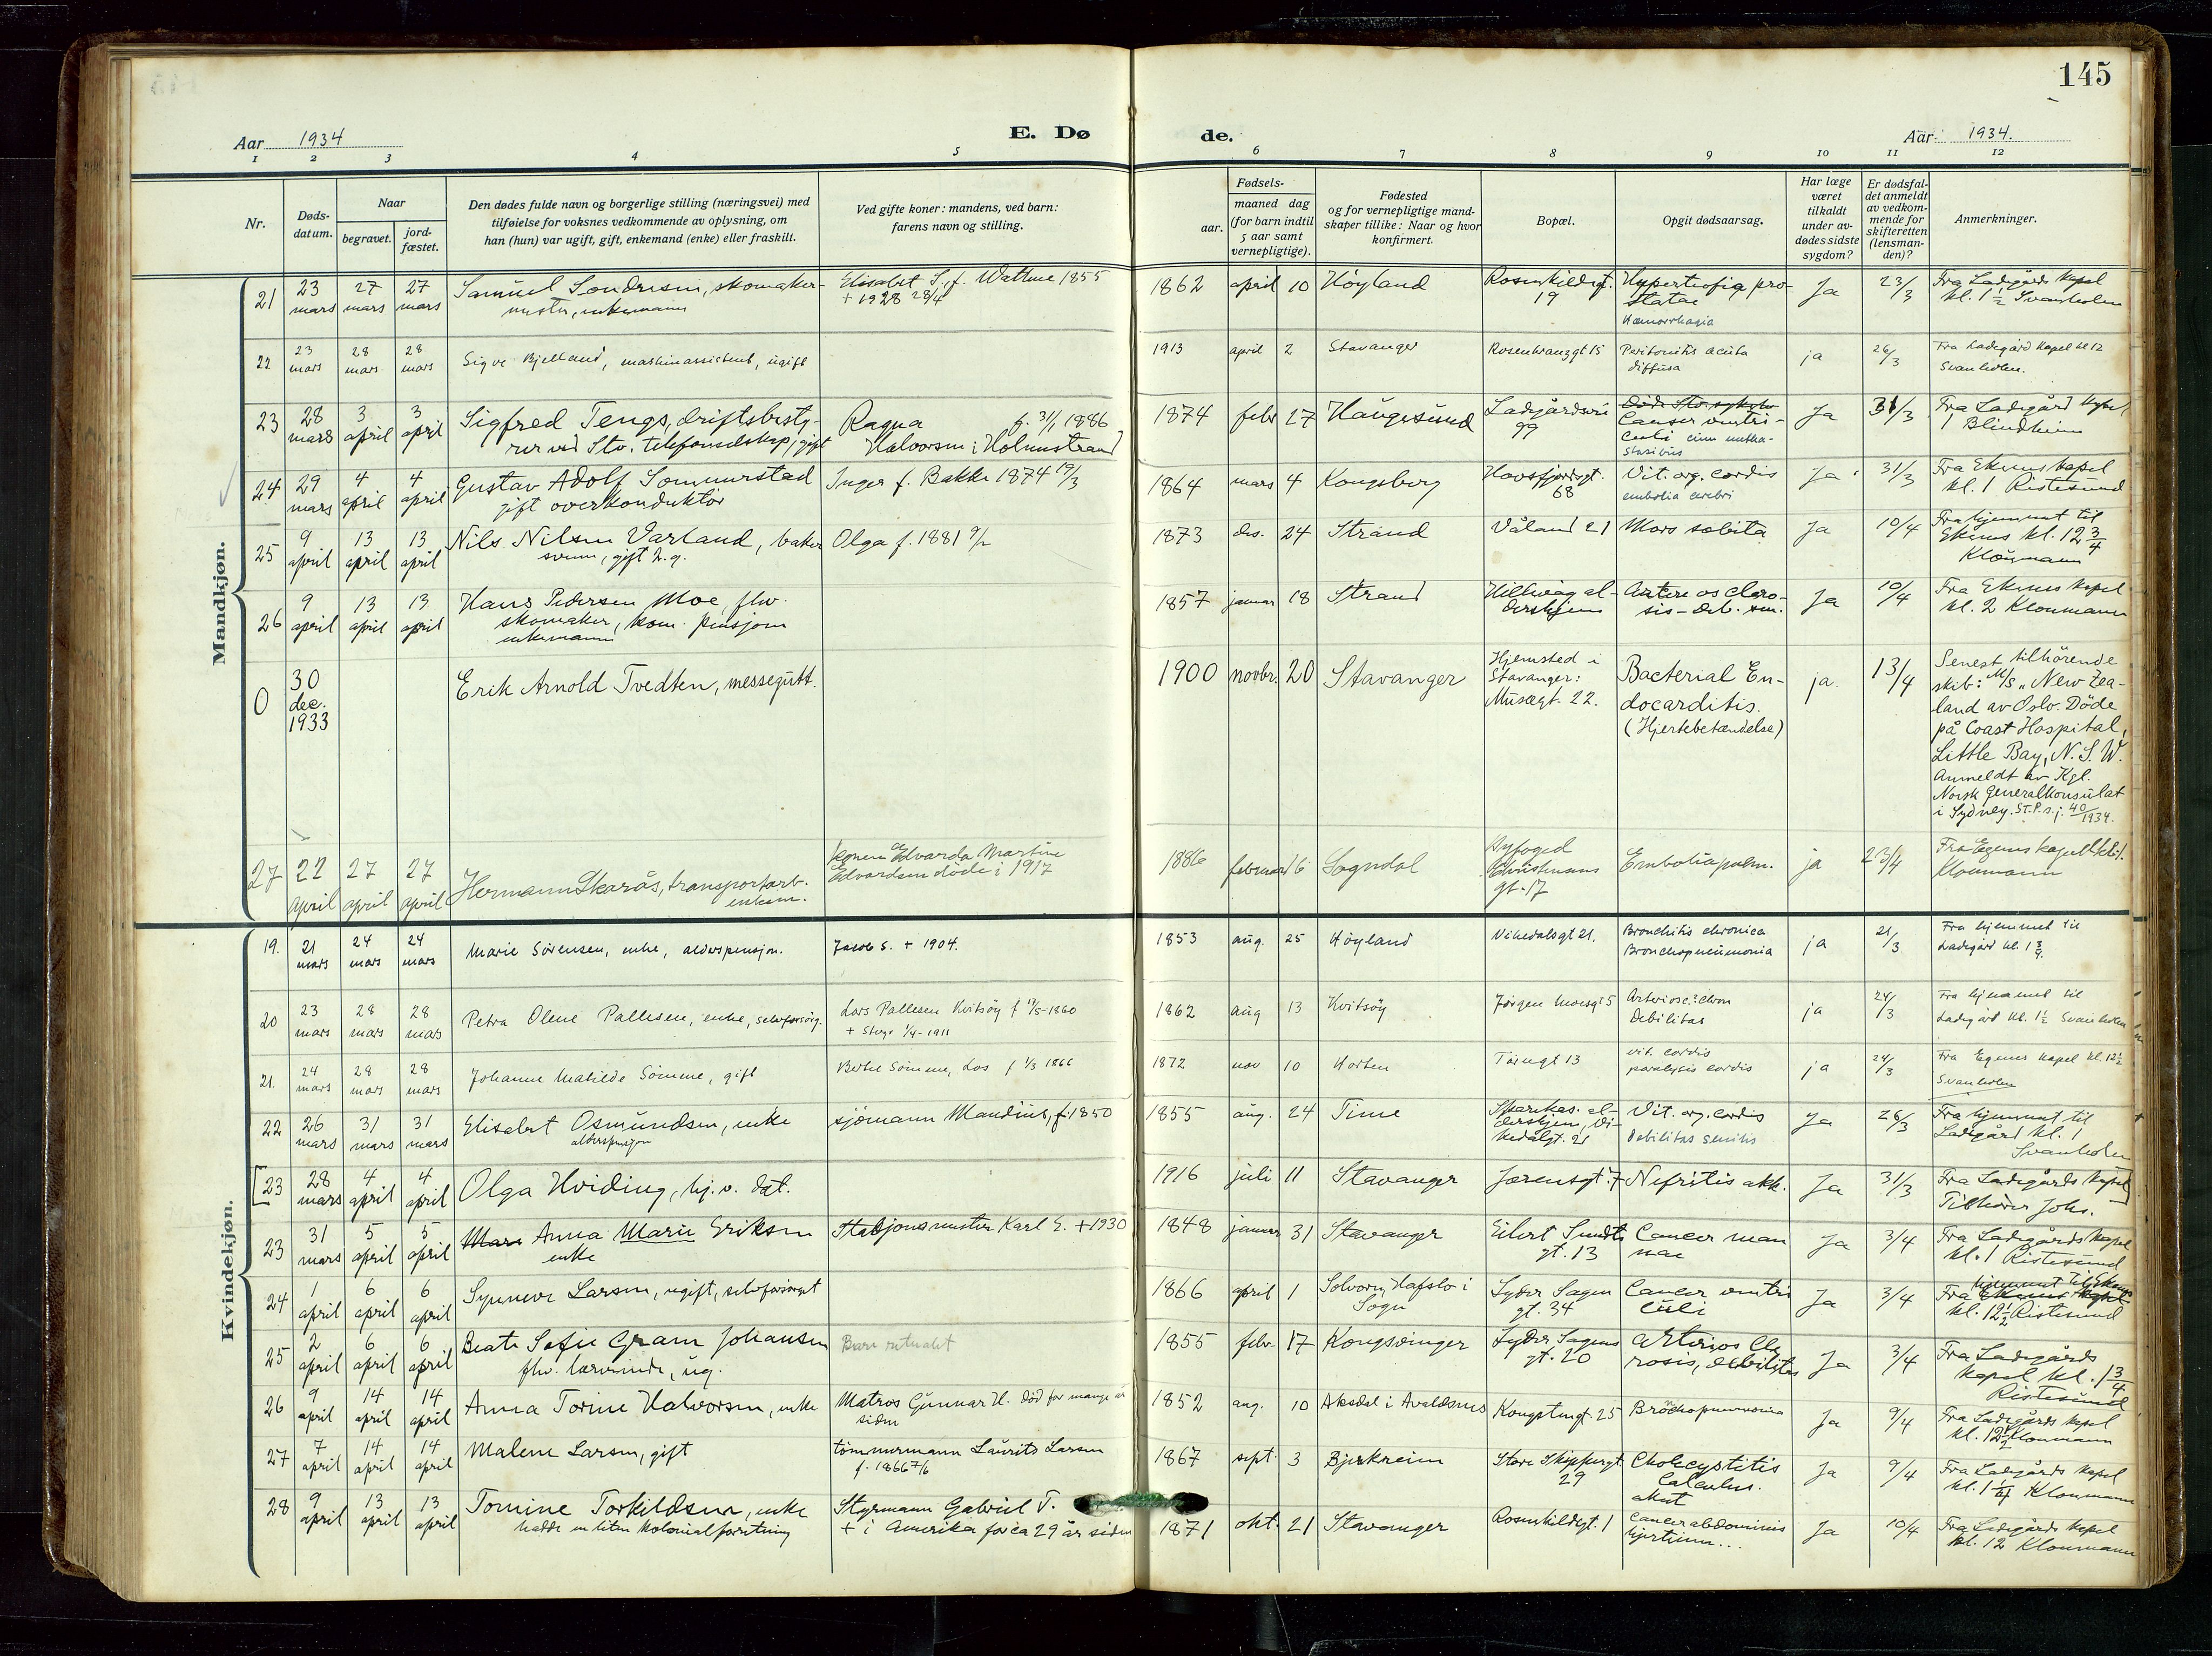 145
Aar 1934
E. Dø
de.
Aar 1934.
1 2 3 4 5 6 7 8 9 10 11 12
Nr.
Døds-
datum.
Naar
begravet.
jord-
fæstet.
Den dødes fulde navn og borgerlige stilling (næringsvei) med
tilføielse for voksnes vedkommende av oplysning, om
han (hun) var ugift, gift, enkemand (enke) eller fraskilt.
Ved gifte koner: mandens, ved barn:
farens navn og stilling.
Fødsels-
aar.
maaned dag
(for barn indtil
5 aar samt
vernepligtige).
Fødested
og for vernepligtige mand-
skaper tillike: Naar og hvor
konfirmert.
Bopæl.
Opgit dødsaarsag.
Har læge
været
tilkaldt
under av-
dødes sidste
sygdom?
Er dødsfal-
det anmeldt
av vedkom-
mende for
skifteretten
(lensman-
den)?
Anmerkninger.
Mandkjøn.
21 23 mars 27 mars 27 mars Samuel Sondresen, skomaker-
mester, enkemann
Elisabet S. f. Wattne 1855
+ 1928 28/4
1862 april 10 Höyland Rosenkildegt.
19
Hypertrofia pro-
statae
Hæmorrhagia
Ja 23/3 Fra Ladegårds kapel
kl. 1 1/2 Svanholm
22 23 mars 28 mars 28 mars Sigve Bjelland, maskinassistent, ugift
1913 april 2 Stavanger Rosenkranzgt 15 Peritonitis acuta
diffusa
ja 26/3 Fra Ladegård kapel kl 12
Svanholm.
23 28 mars 3 april 3 april Sigfred Tengs, driftsbesty-
rer ved Stv. telefonselskap, gift
Ragna f. 31/1 1886
Halvorsen i Holmestrand
1874 febr 27 Haugesund Ladegårdsvei
99
Cancer ventri-
culi cum metha-
stasibus
Ja 31/3 Fra Ladegård kapel
1 Blindheim
24 29 mars 4 april 4 april Gustav Adolf Sommerstad
gift overkonduktör
Inger f. Bakke 1874 19/3
1864 mars 4 Kongsberg Havsfjordgt.
68
Vit. org. cordis
embolia cerebri
Ja 31/3 Fra Ekenes kapel
kl. 1 Ristesund
25 9 april 13 april 13 april Nils Nilsen Varland, baker
svenn, gift 2. g.
Olga f. 1881 9/2
1873 des. 24 Strand Våland 21 Mors subita
Ja 10/4 Fra hjemmet til
Ekenes kl. 12 3/4
Kloumann
26 9 april 13 april 13 april Hans Pedersen Moe, fhv.
skomaker, kom. pensjon
enkemann
1857 januar 18 Strand Hillevåg al-
dershjem
Arterioschlero-
sis - deb. sen.
Ja 10/4 Fra Ekenes kapel
kl. 2 Kloumann
0 30 dec. 1933 Erik Arnold Tvedten, messegutt.
1900 novbr. 20 Stavanger Hjemsted i
Stavanger:
Musegt. 22.
Bacterial En-
docarditis.
(Hjertebetændelse)
ja. 13/4 Senest tilhörende
skib: M/S „New Zea-
land av Oslo. Döde
på Coast Hospital,
Little Bay, N.S.W.
Anmeldt av Kgl.
Norsk Generalkonsulat
i Sydney. St.P. s.j. 40/1934.
27 22 april 27 april 27 april Hermann Skarås, transportarb.
enkem.
Konen Edvarda Martine
Edvardsen döde i 1917
1886 februar 16 Sogndal Byfoged
Christensens
gt. 17
Embolia pulm. ja 23/4 Fra Egenes kapel
Kloumann
Kvindekjøn.
19. 21 mars 24 mars 24 mars Marie Sörensen, enke, alderspensjon.
Jacob S. + 1904.
1853 aug. 25 Höyland Vikedalsgt 21. Bronchitis chronica
Bronchopneumonia
ja 21/3 Fra hjemmet til
Ladegård kl. 1 3/4.
20 23 mars 28 mars 28 mars Petra Olene Pallesen, enke, selvforsörg.
Lars Pallesen Kvitsöy f 17/5-1860
+ Stvgr 1/4-1911
1862 aug 13 Kvitsöy Jörgen Moesgt 5 Arteriosc. chron
Debilitas
ja 24/3 Fra hjemmet til
Ladegård kl. 1 1/2 Svanholm
21. 24 mars 28 mars 28 mars Johanne Matilde Sömme, gift
Berthel Sömme, Los f 1/3 1866
1872 nov 10 Horten Tårngt 13 vit. cordis
paralysis cordis
ja 24/3 Fra Egenes kapel kl. 12 1/2
Svanholm
22 26 mars 31 mars 31 mars Elisabet Osmundsen, enke
alderspensjon
sjömann Mandius, f. 1850
1855 aug. 24 Time Sparekas. al-
dershjem, Vi-
kedalgt. 21
Vit. org. cordis
Debilitas senilis
Ja 26/3 Fra hjemmet til
Ladegård kl. 1
Svanholm
[23 28 mars 4 april 4 april Olga Hviding, hj. v. dat.
1916 juli 11 Stavanger Jorensgt. 7 Nefritis akk.
Ja 31/3 Fra Ladegårds kapel]
Tilhörer Joh.
23 31 mars 5 april 5 april Mare Anna Marie Eriksen
enke
Stasjonsmester Karl E. + 1930
1848 januar 31 Stavanger Eilert Sundts
gt. 13
Cancer mam
mae
Ja 3/4 Fra Ladegårds kapel
kl. 1 Ristesund
24 1 april 6 april 6 april Synneve Larsen, ugift, selvforsörget
1866 april 1 Solvorn, Hafslo i
Sogn
Lyder Sagen
gt. 34
Cancer ventri
culi
Ja 3/4 Fra hjemmet til Ekenes
kl. 12 1/2 Ristesund
25 2 april 6 april 6 april Beate Sofie Gram Johansen
fhv. lærerinde, ug.
Bare ritualet
1855 febr. 17 Kongsvinger Lyder Sagens
gt. 20
Arterioscle
rosis, debilitas
Ja 3/4 Fra Ladegårds
kapel kl. 1 3/4
Ristesund
26 9 april 14 april 14 april Anna Torine Halvorsen, enke
Matros Gunnar H. död for mange år
siden
1852 aug. 10 Aksdal i Avaldsnes Kongstengt. 25 Bronchopneumonia
Ja 9/4 Fra Ladegårds kapel
kl. 12 1/2 Kloumann
27 7 april 14 april 14 april Malene Larsen, gift
tömmermann Laurits Larsen
f. 1866 7/6
1867 sept. 3 Bjerkreim Store Skippergt.
29
Cholecystitis
Calculus.
akut
Ja 9/4 Fra Ladegårds kapel
kl. 1 1/4 Kloumann
28 9 april 13 april 13 april Tomine Torkildsen, enke
hadde en liten kolonialforretning
Styrmann Gabriel T.
+ i Amerika for ca 29 år siden
1871 okt. 21 Stavanger Rosenkildegt. 1 Cancer abdominis
Ja 10/4 Fra Ladegårds kapel
kl. 12 Kloumann